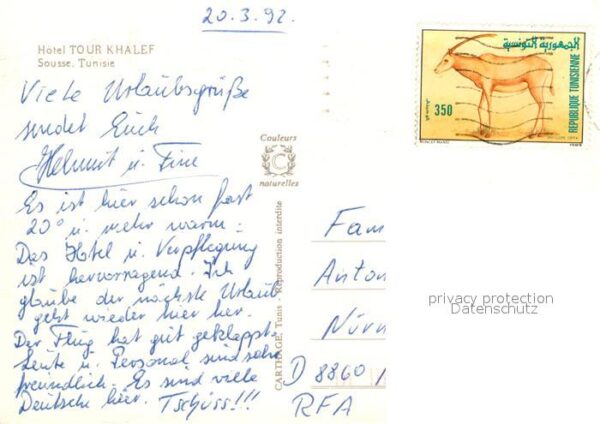 20.3.92.
Hôtel TOUR KHALEF
Sousse. Tunisie
Viele Urlaubsgrüße
sendet Euch
Helmut u. Fine
Es ist hier schon fast
20° u. mehr warm.
Das Hotel u. Verpflegung
ist hervorragend. Ich
glaube der nächste Urlaub
geht wieder hier her.
Der Flug hat gut geklappt.
Leute u. Personal sind sehr
freundlich. Es sind viele
Deutsche hier. Tschüss!!!
Couleurs
C
naturelles
CARTHAGE, Tunis - Reproduction interdite
الجمهورية التونسية
350
REPUBLIQUE TUNISIENNE
Fam
Anton
Nürn
D 8860 /
RFA
privacy protection
Datenschutz